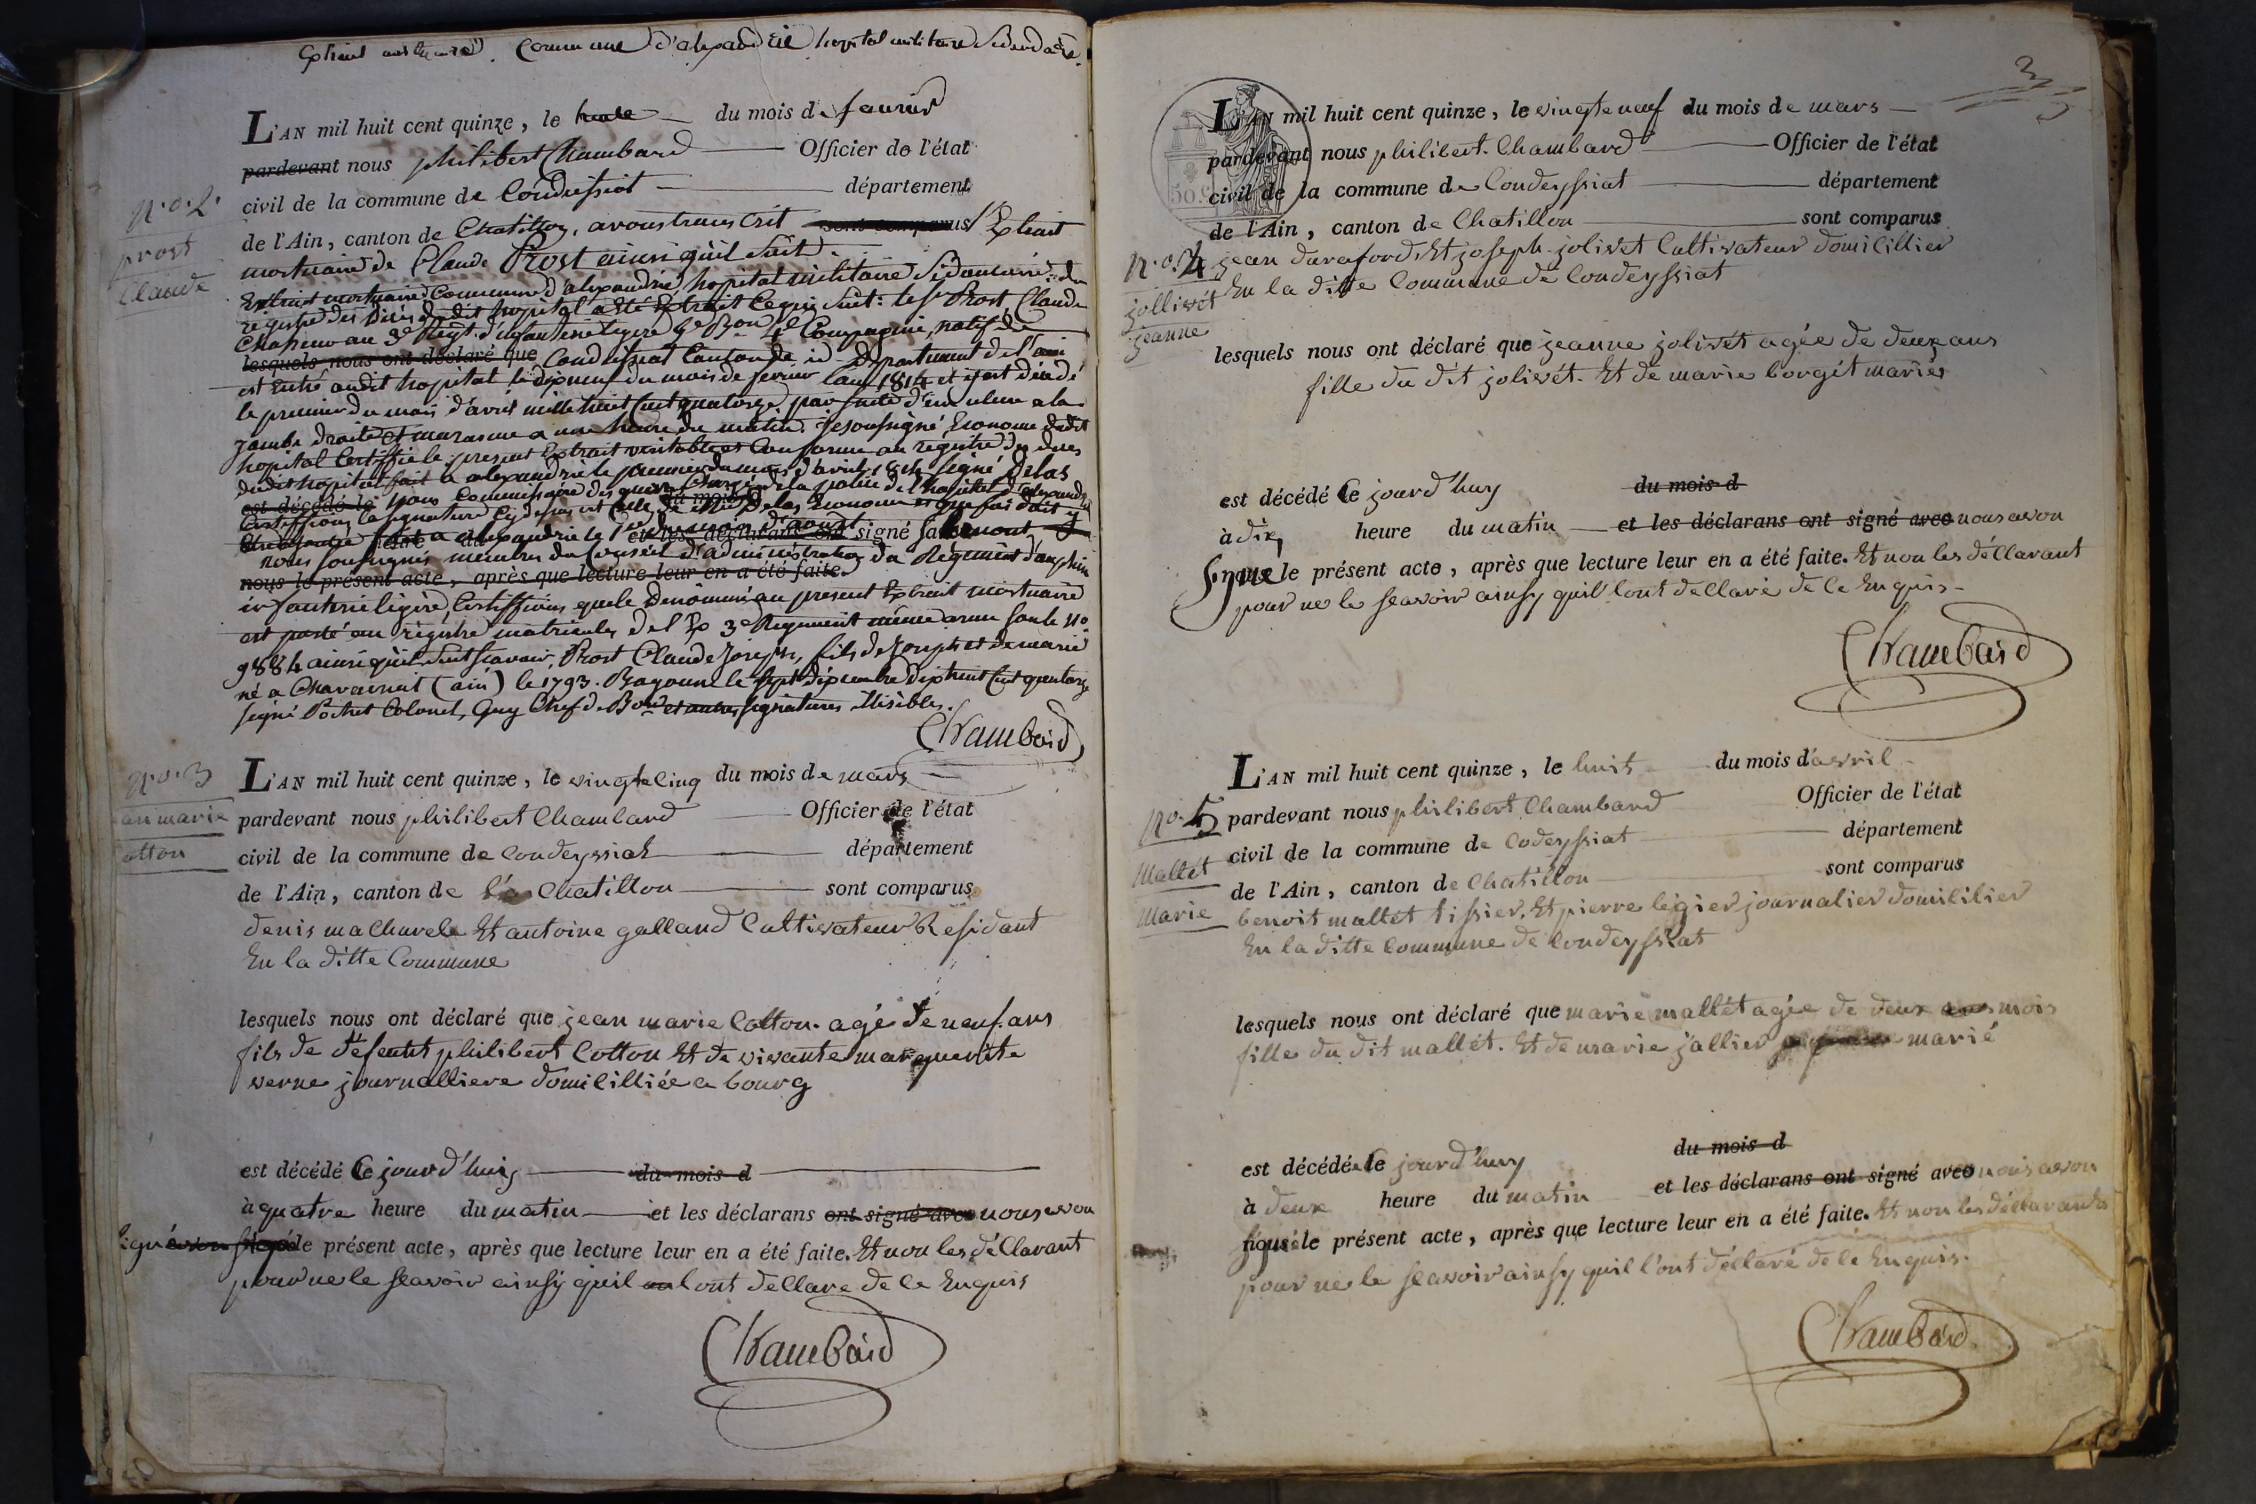 Extrait mortuaire. Commune d'alexandrie hopital militaire
L'AN mil huit cent quinze, le du mois de fevrier
pardevant nous philibert Chambard Officier de l'état
civil de la commune de Condeissiat département
de l'Ain, canton de Chatillon, avons transcrit sont comparus l'Extrait
n.o. 2.
prost
Claude
mortuaire de Claude Prost ainsi qu'il suit.
Extrait mortuaire Commune d'alexandrie hopital militaire du
registre des décès dudit hopital a été Extrait ce qui suit: le sr Prost Claude
Chasseur au 3e Regt d'infanterie legere 4e Bon 1e Compagnie, natif de
lesquels nous ont déclaré que Condeissiat Canton de id département de l'ain
est Entré audit hopital le dix neuf du mois de fevrier l'an 1814 et y est décédé
le premier du mois d'avril mille huit Cent quatorze par suite d'un ulcere a la
jambe droite et marasme a une heure du matin. Je soussigné, Econome dudit
hopital Certiffie le present Extrait veritable et Conforme au registre des deces
dudit hopital fait a alexandrie le premier du mois d'avril 1814 signé Delas
est décédé le nous Commissaire des guerres Chargé de la police de l'hopital d'alexandrie
du mois d
Certiffions la signature Cy dessus est Celle de Mr Delas Econome et que foi doit y
heure du et les déclarans ont signé
nous soussignés membres du Conseil d'administration du Regiment dauphin
nous le présent acte, après que lecture leur en a été faite.
infanterie légère, Certiffions que le denommé au present Extrait mortuaire
est porté au registre matricule, del Ex 3e Regiment même arme sous le no
9884 ainsi qu'il suit scavoir, Prost Claude Joseph, fils de Joseph et de marie
né a Chavannat (ain) le 1793. Bayonne le sept decembre dix huit Cent quatorze
signé Pochet Colonel, Guy Chef de Bon et autres signatures illisibles.
Chambard
n.o. 3
jean marie
Cotton
L'AN mil huit cent quinze, le vingtecinq du mois de mars
pardevant nous philibert Chambard Officier de l'état
civil de la commune de Condeyssiat département
de l'Ain, canton de Chatillon sont comparus
denis machurele Et antoine galland Cultivateur Residant
En la ditte Commune
lesquels nous ont déclaré que jean marie Cotton agé de neuf ans
fils de défeunt philibert Cotton Et de vivante marguerite
verne journalliere domicilliée a bourg
est décédé Ce jourd'huy du mois d
à quatre heure du matin et les déclarans ont signé avec nous avon
signé le présent acte, après que lecture leur en a été faite. Et non les décllarant
pour ne le scavoir ainsy quil lont decllare de Ce Enquis
Chambard
3
L'AN mil huit cent quinze, le vingte neuf du mois de mars
pardevant nous philibert Chambard Officier de l'état
civil de la commune de Condeyssiat département
50 c
de l'Ain, canton de Chatillon sont comparus
n.o. 4
jollivét
jeanne
jean duraford Et joseph jolivet Cultivateur domicillier
En la ditte Commune de Condeyssiat
lesquels nous ont déclaré que jeanne jolivét agée de deux ans
fille du dit jolivét. Et de marie borgét mariés
est décédé Ce jourd'huy du mois d
à dix heure du matin et les déclarans ont signé avec nous avon
signé le présent acte, après que lecture leur en a été faite. Et non les décllarant
pour ne le scavoir ainsy quil lont decllaré de Ce Enquis
Chambard
L'AN mil huit cent quinze, le huit du mois d'avril
no. 5
Mallét
Marie
pardevant nous philibert Chambard Officier de l'état
civil de la commune de Codeyssiat département
de l'Ain, canton de Chatillon sont comparus
benoit mallét tissier, Et pierre légier journalier domicilier
En la ditte Commune de Condeyssiat
lesquels nous ont déclaré que marie mallét agée de deux ans mois
fille du dit mallét. Et de marie jallier marié
est décédée Ce jourd'huy du mois d
à deux heure du matin et les déclarans ont signé avec nous avon
signé le présent acte, après que lecture leur en a été faite. Et non les décllarants
pour ne le scavoir ainsy quil l'ont décllaré de Ce Enquis.
Chambard